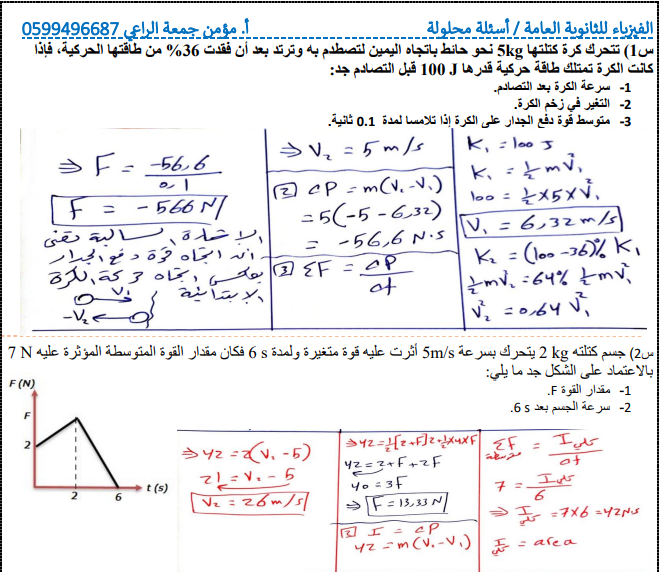 الفيزياء للثانوية العامة / أسئلة محلولة
أ. مؤمن جمعة الراعي 0599496687
س1) تتحرك كرة كتلتها 5kg نحو حائط باتجاه اليمين لتصطدم به وترتد بعد أن فقدت 36% من طاقتها الحركية، فإذا
كانت الكرة تمتلك طاقة حركية قدرها 100 J قبل التصادم جد:
1- سرعة الكرة بعد التصادم.
2- التغير في زخم الكرة.
3- متوسط قوة دفع الجدار على الكرة إذا تلامسا لمدة 0.1 ثانية.
K₁ = 100 J
K₁ = ½ m V₁²
100 = ½ × 5 × V₁²
V₁ = 6,32 m/s
K₂ = (100 - 36)% K₁
½ m V₂² = 64% ½ m V₁²
V₂² = 0,64 V₁²
⇒ V₂ = 5 m/s
[2] ΔP = m(V₂ - V₁)
= 5(-5 - 6,32)
= -56,6 N.s
[3] ΣF = ΔP
Δt
⇒ F = -56,6
0,1
F = -566 N
الإشارة السالبة تعني
أن اتجاه قوة دفع الجدار
بعكس اتجاه حركة الكرة
الابتدائية
V₁
-V₂
س2) جسم كتلته 2 kg يتحرك بسرعة 5m/s أثرت عليه قوة متغيرة ولمدة 6 s فكان مقدار القوة المتوسطة المؤثرة عليه 7 N
بالاعتماد على الشكل جد ما يلي:
1- مقدار القوة F.
2- سرعة الجسم بعد 6 s.
F (N)
F
2
2
6
t (s)
ΣF متوسطة = I كلي
Δt
7 = I كلي
6
⇒ I كلي = 7×6 = 42 N.s
I كلي = area
⇒ 42 = ½[2+F]2 + ½×4×F
42 = 2+F+2F
40 = 3F
⇒ F = 13,33 N
[2] I = ΔP
42 = m(V₂ - V₁)
⇒ 42 = 2(V₂ - 5)
21 = V₂ - 5
V₂ = 26 m/s